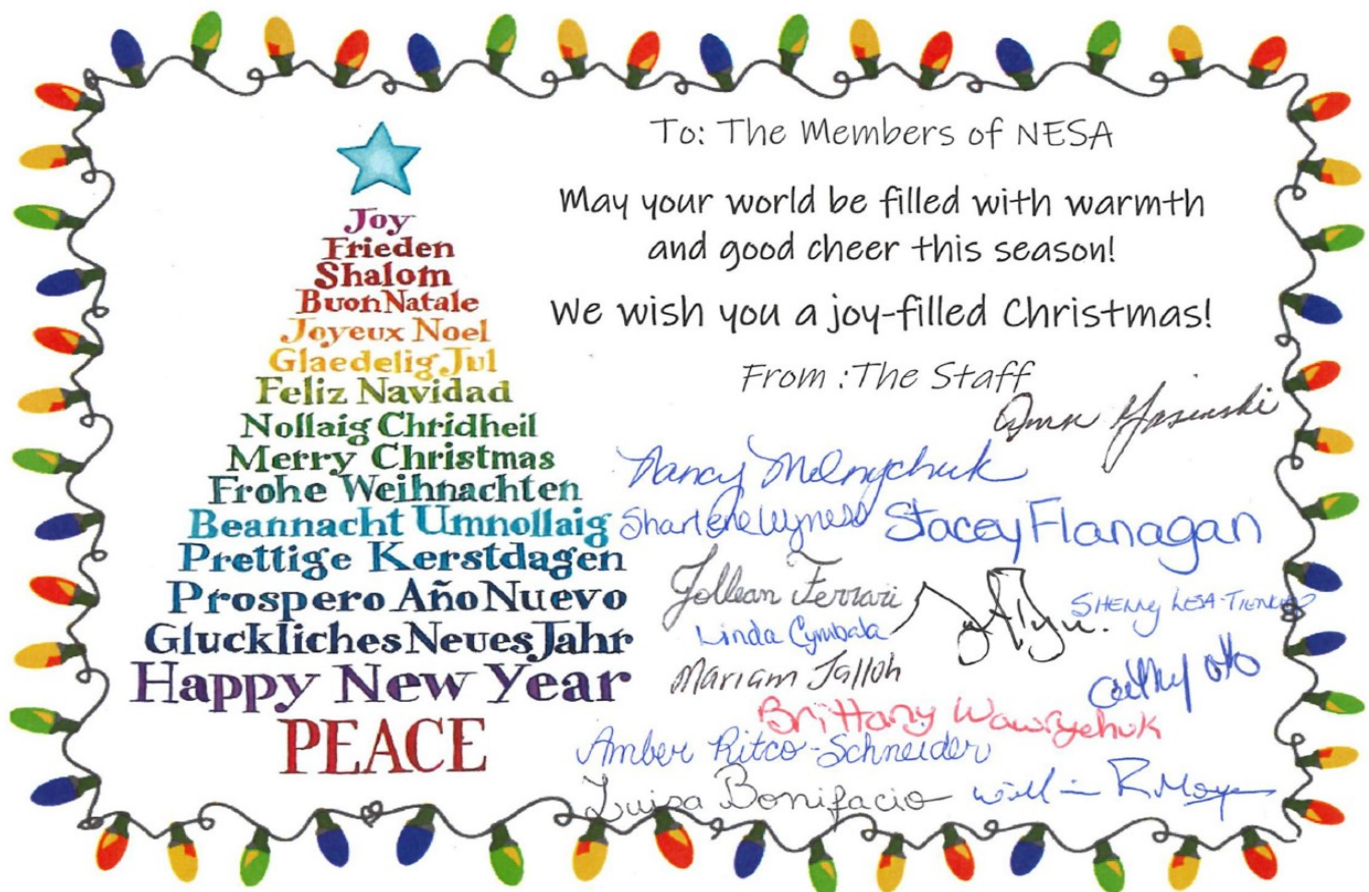 Joy
Frieden
Shalom
Buon Natale
Joyeux Noel
Glaedelig Jul
Feliz Navidad
Nollaig Chridheil
Merry Christmas
Frohe Weihnachten
Beannacht Umnollaig
Prettige Kerstdagen
Prospero Año Nuevo
Gluckliches Neues Jahr
Happy New Year
PEACE
To: The Members of NESA
May your world be filled with warmth
and good cheer this season!
We wish you a joy-filled Christmas!
From :The Staff
Nancy Melnychuk
Sharlene Wyness
Stacey Flanagan
Jollean Ferrari
Linda Cymbala
Sherry
Mariam Jalloh
Cathy Otto
Brittany Wawrychuk
Amber Ritco-Schneider
Luisa Bonifacio